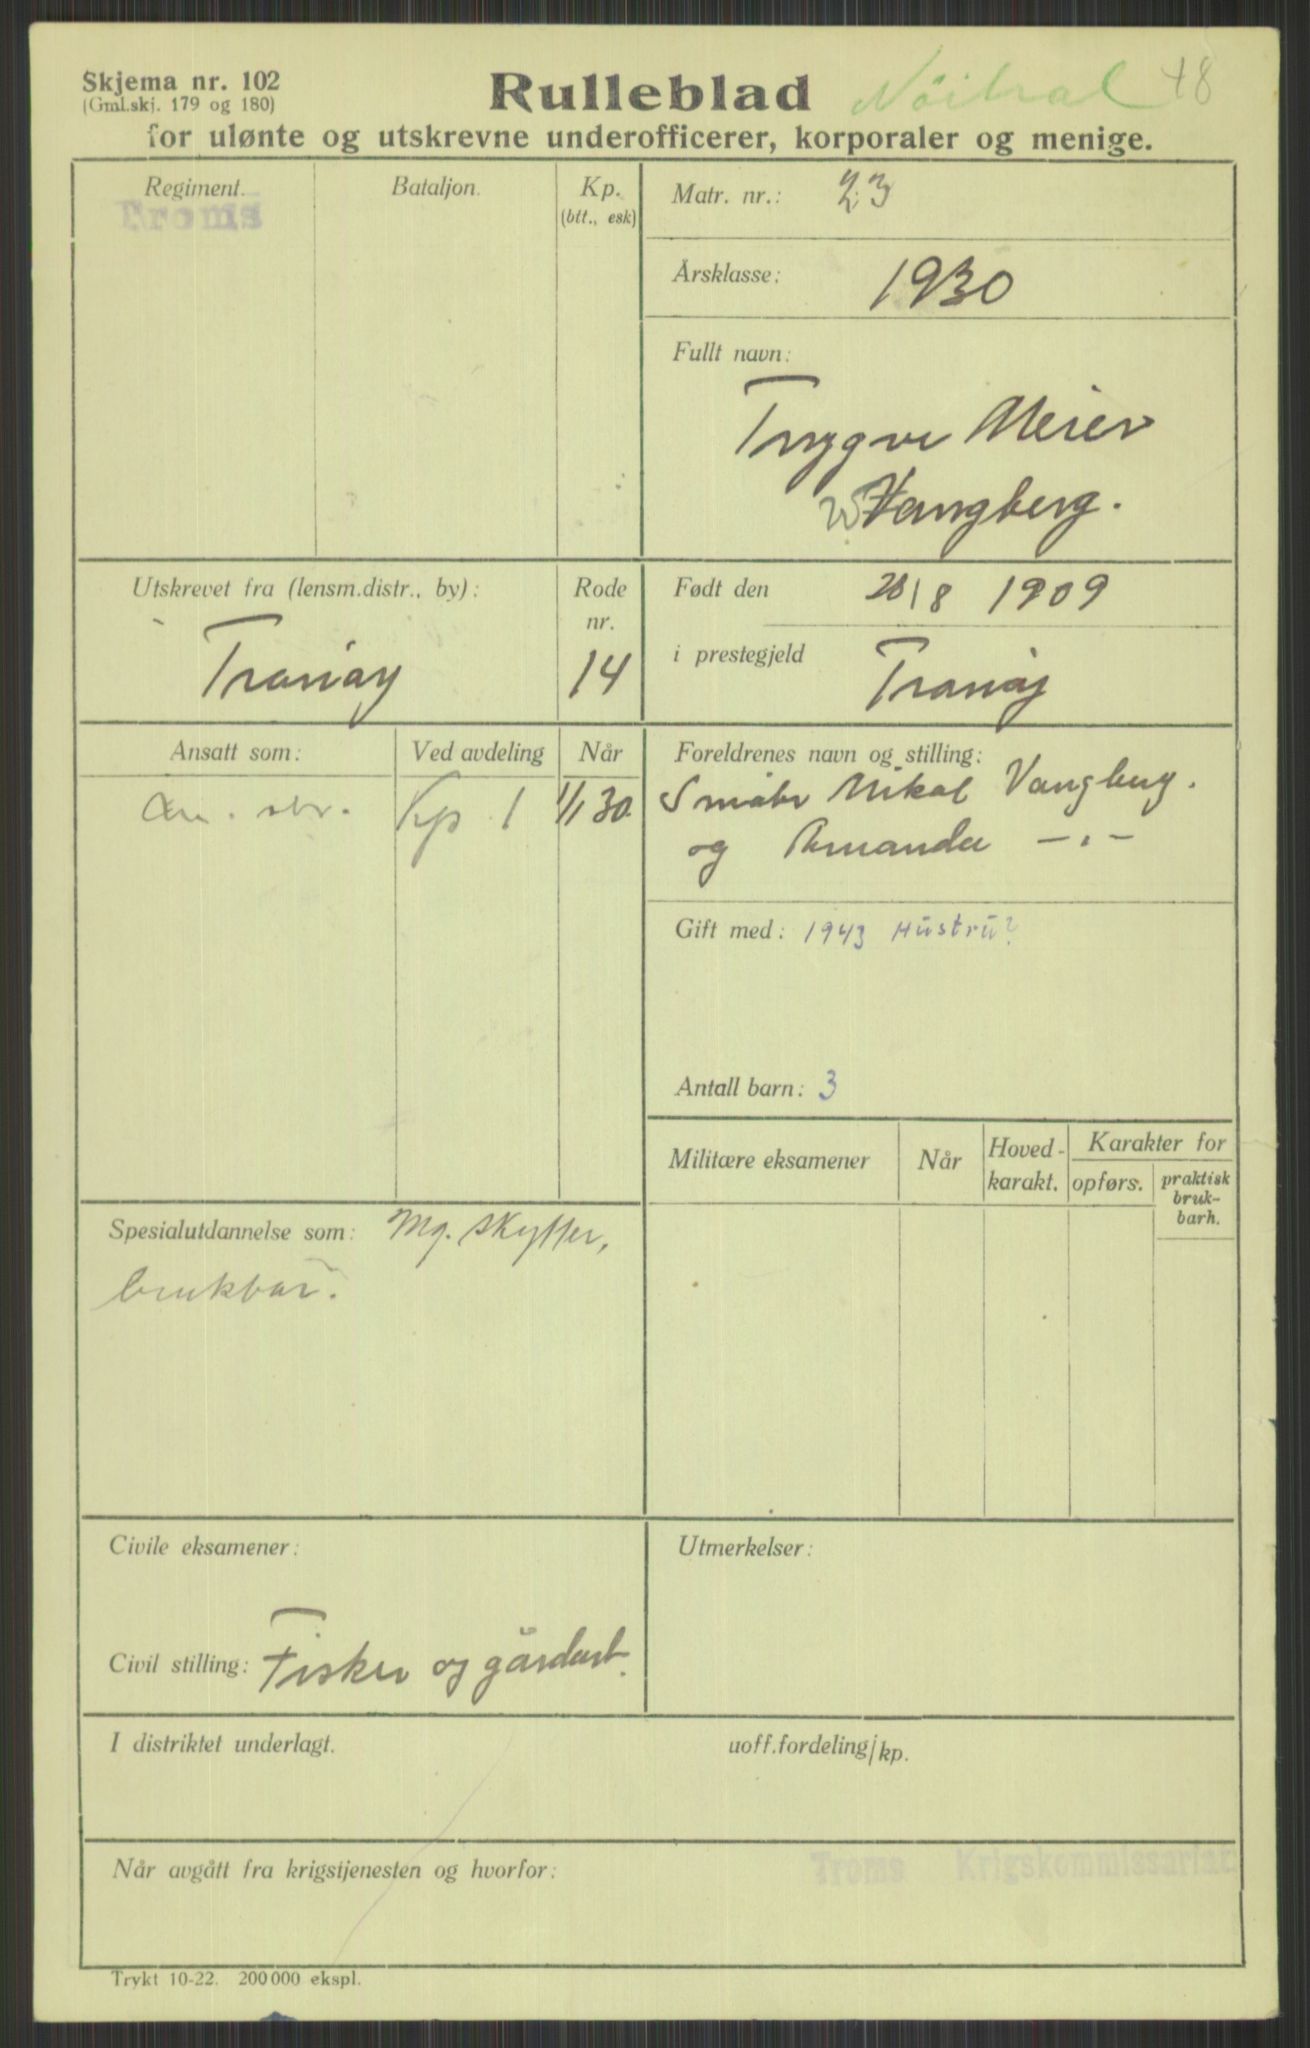 Skjema nr. 102
(Gml.skj. 179 og 180)
Rulleblad
Nöitral 48
for ulønte og utskrevne underofficerer, korporaler og menige.
Regiment.
Troms
Bataljon.
Kp.
(btt., esk)
Matr. nr.: 23
Årsklasse: 1930
Fullt navn:
Trygve Meier
W Vangberg.
Utskrevet fra (lensm.distr., by):
Tranøy
Rode
nr.
14
Født den 28/8 1909
i prestegjeld Tranøy
Ansatt som:
Ved avdeling
Når
Kp 1
1/1 30.
Foreldrenes navn og stilling:
Småbr Nikol Vangberg.
og Amanda —„—
Gift med: 1943 Hustru?
Antall barn: 3
Militære eksamener
Når
Hoved-
karakt.
Karakter for
opførs.
praktisk
bruk-
barh.
Spesialutdannelse som: Mg. skytter,
brukbar.
Civile eksamener:
Civil stilling: Fisker og gårdarb.
Utmerkelser:
I distriktet underlagt.
uoff.fordeling/kp.
Når avgått fra krigstjenesten og hvorfor:
Troms Krigskommissariat
Trykt 10-22. 200 000 ekspl.